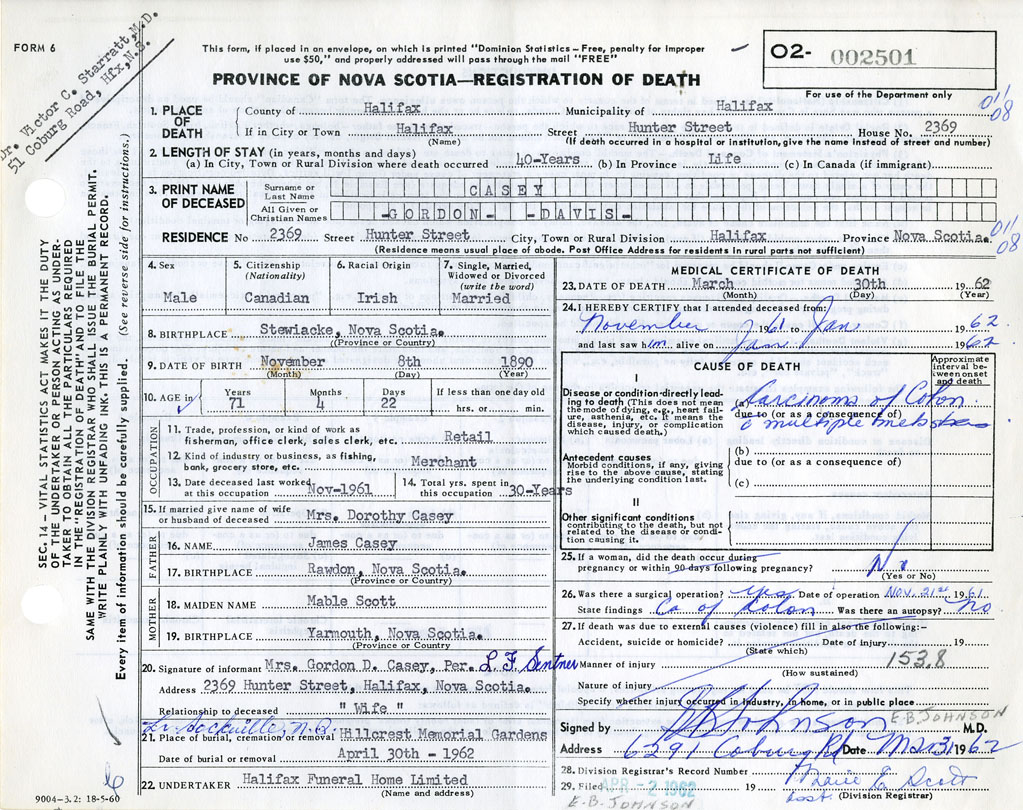 FORM 6
Dr. Victor C. Starratt, M.D.
51 Coburg Road, Hfx, N.S.
This form, if placed in an envelope, on which is printed "Dominion Statistics – Free, penalty for improper
use $50," and properly addressed will pass through the mail "FREE"
PROVINCE OF NOVA SCOTIA—REGISTRATION OF DEATH
O2- 002501
For use of the Department only
011
08
1. PLACE OF DEATH
County of Halifax Municipality of Halifax
If in City or Town Halifax Street Hunter Street House No. 2369
(Name) (If death occurred in a hospital or institution, give the name instead of street and number)
2. LENGTH OF STAY (in years, months and days)
(a) In City, Town or Rural Division where death occurred 40-Years (b) In Province Life (c) In Canada (if immigrant)
3. PRINT NAME OF DECEASED
Surname or Last Name CASEY
All Given or Christian Names -GORDON- -DAVIS-
RESIDENCE No 2369 Street Hunter Street City, Town or Rural Division Halifax Province Nova Scotia.
(Residence means usual place of abode. Post Office Address for residents in rural parts not sufficient)
011
08
4. Sex
Male
5. Citizenship
(Nationality)
Canadian
6. Racial Origin
Irish
7. Single, Married,
Widowed or Divorced
(write the word)
Married
8. BIRTHPLACE Stewiacke, Nova Scotia.
(Province or Country)
9. DATE OF BIRTH November 8th 1890
(Month) (Day) (Year)
10. AGE in
Years Months Days If less than one day old
71 4 22 hrs. or min.
OCCUPATION
11. Trade, profession, or kind of work as
fisherman, office clerk, sales clerk, etc. Retail
12. Kind of industry or business, as fishing,
bank, grocery store, etc. Merchant
13. Date deceased last worked
at this occupation Nov-1961
14. Total yrs. spent in
this occupation 30-Years
15. If married give name of wife
or husband of deceased Mrs. Dorothy Casey
FATHER
16. NAME James Casey
17. BIRTHPLACE Rawdon, Nova Scotia.
(Province or Country)
MOTHER
18. MAIDEN NAME Mable Scott
19. BIRTHPLACE Yarmouth, Nova Scotia.
(Province or Country
20. Signature of informant Mrs. Gordon D. Casey, Per. L F Sentner
Address 2369 Hunter Street, Halifax, Nova Scotia.
Relationship to deceased " Wife "
Sackville, N.S.
21. Place of burial, cremation or removal Hillcrest Memorial Gardens
Date of burial or removal April 30th - 1962
22. UNDERTAKER Halifax Funeral Home Limited
(Name and address)
9004-3.2: 18-5-60
MEDICAL CERTIFICATE OF DEATH
23. DATE OF DEATH March 30th 1962
(Month) (Day) (Year)
24. I HEREBY CERTIFY that I attended deceased from:
November 1961 to Jan 1962
and last saw him alive on Jan 1962
CAUSE OF DEATH
Approximate
interval be-
tween onset
and death
I
Disease or condition directly lead-
ing to death (This does not mean
the mode of dying, e.g., heart fail-
ure, asthenia, etc. It means the
disease, injury, or complication
which caused death.)
(a) Carcinoma of Colon
due to (or as a consequence of)
c multiple metastases
Antecedent causes
Morbid conditions, if any, giving
rise to the above cause, stating
the underlying condition last.
(b)
due to (or as a consequence of)
(c)
II
Other significant conditions
contributing to the death, but not
related to the disease or condi-
tion causing it.
25. If a woman, did the death occur during
pregnancy or within 90 days following pregnancy? No
(Yes or No)
26. Was there a surgical operation? Yes Date of operation Nov. 21st 1961
State findings Ca of Colon Was there an autopsy? No
27. If death was due to external causes (violence) fill in also the following:–
Accident, suicide or homicide? Date of injury 19
(State which)
Manner of injury 153.8
(How sustained)
Nature of injury
Specify whether injury occurred in industry, in home, or in public place
Signed by E B Johnson M.D.
E-B. JOHNSON
Address 6291 Coburg Rd Date Mar 31 1962
28. Division Registrar's Record Number
29. Filed APR - 2 1962 19 Marie E Scott
E-B-JOHNSON asst. (Division Registrar)
SEC. 14 – VITAL STATISTICS ACT MAKES IT THE DUTY
OF THE UNDERTAKER OR PERSON ACTING AS UNDER-
TAKER TO OBTAIN ALL THE PARTICULARS REQUIRED
IN THE "REGISTRATION OF DEATH" AND TO FILE THE
SAME WITH THE DIVISION REGISTRAR WHO SHALL ISSUE THE BURIAL PERMIT.
WRITE PLAINLY WITH UNFADING INK. THIS IS A PERMANENT RECORD.
Every item of information should be carefully supplied. (See reverse side for instructions.)